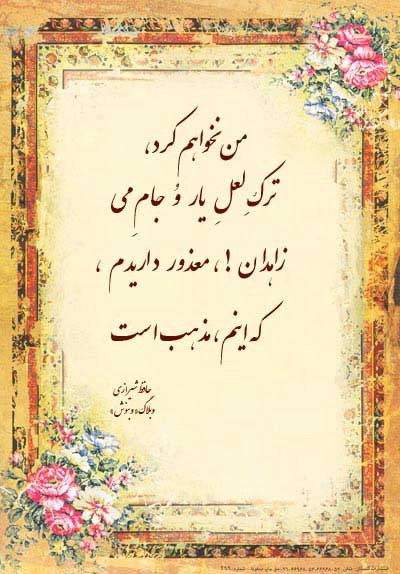 من نخواهم کرد،
ترکِ لعلِ یار وُ جامِ می
زاهدان !، معذور داریدم ،
که اینم، مذهب است
حافظ شیرازی
وبلاگ «وبنوش»